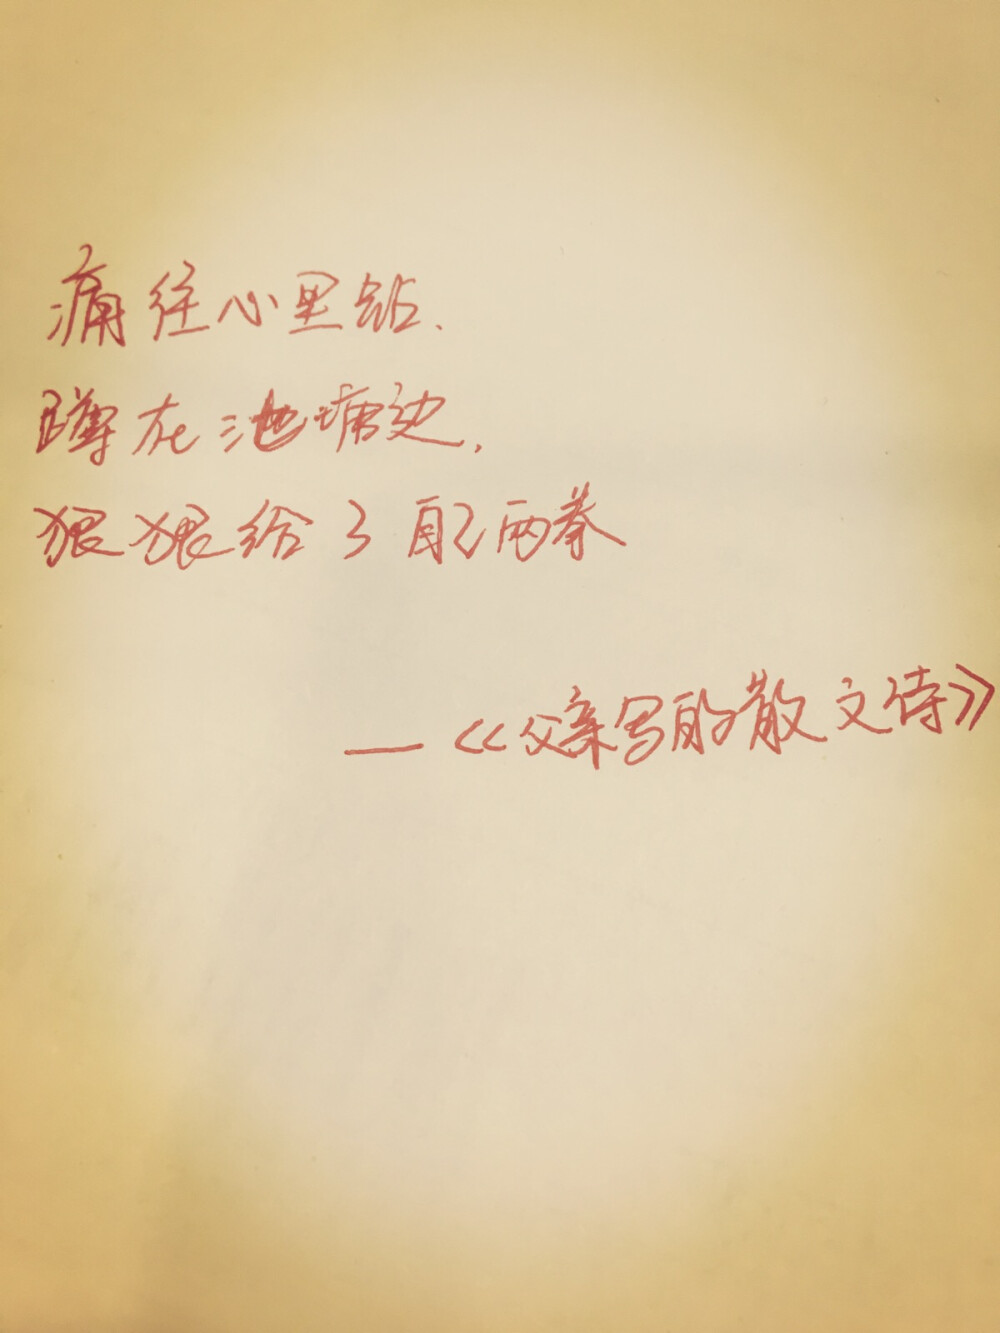 痛往心里钻、
蹲在池塘边,
狠狠给了自己两拳
——《父亲写的散文诗》